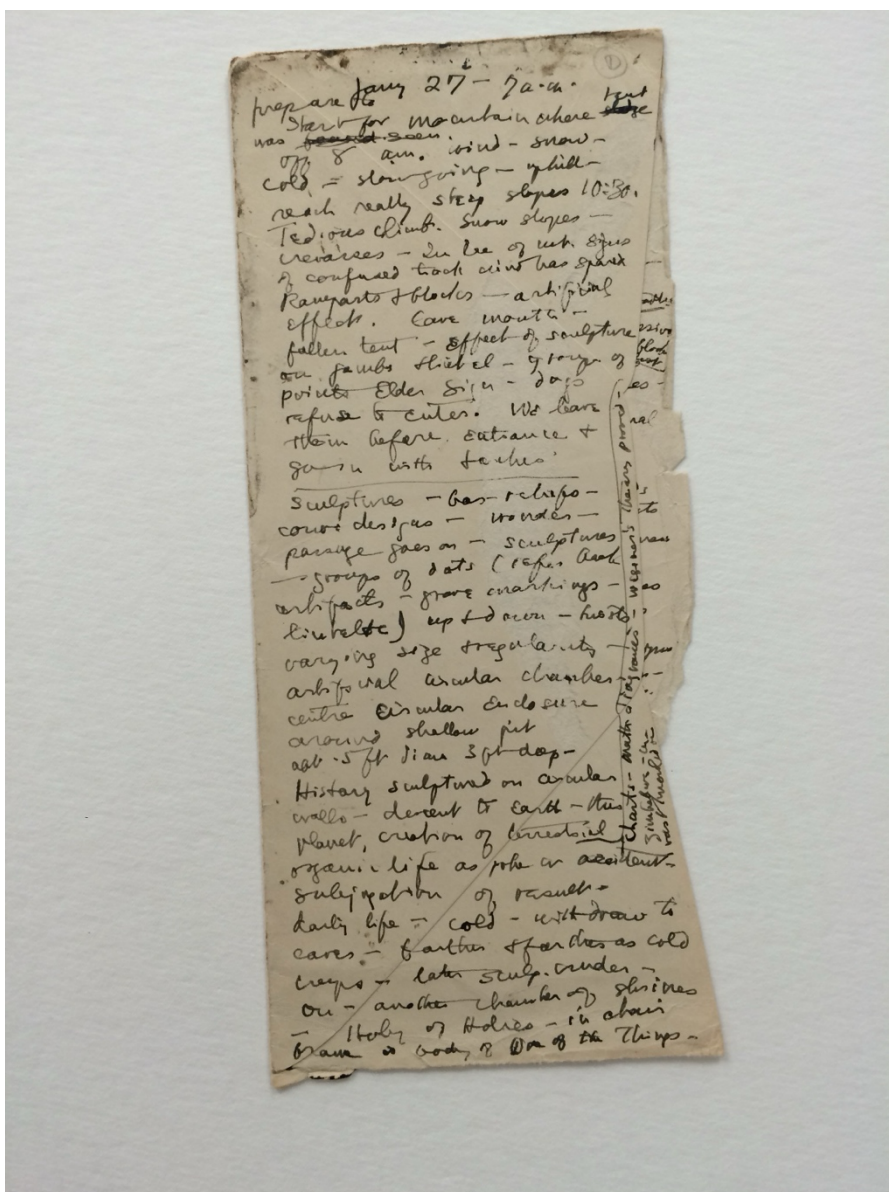 D
Jany 27 – 7 a.m.
prepare to
start for mountain where tent
was seen.
off 8 am. wind – snow –
cold – slow going – uphill –
reach really steep slopes 10:30.
Tedious climb. Snow slopes –
crevasses – In lee of mt. signs
of confused track wind has spared –
Ramparts & blocks – artificial
effect. Cave mouth –
fallen tent – effect of sculpture
on jambs & lintel – groups of
points Elder Sign – dogs
refuse to enter. We leave
them before entrance &
go in with torches
Sculptures – bas-reliefs –
designs – wonder –
passage goes on – sculptures
– groups of dots (refer back
artifacts – grave markings –
lintel etc) up & down –
varying size & regularity –
artificial circular chamber –
centre circular enclosure
around shallow pit
abt 5 ft diam 3 ft deep –
History sculptured on circular
walls – descent to Earth – this
planet, creation of terrestrial
organic life as joke or accident –
subjugation of result –
daily life – cold – withdraw to
caves – farther & farther as cold
creeps – later sculp. cruder –
on – another chamber of shrines
– Holy of Holies – in
is body of One of the Things –
Charts – math diagrams – Wegener's theory proved –